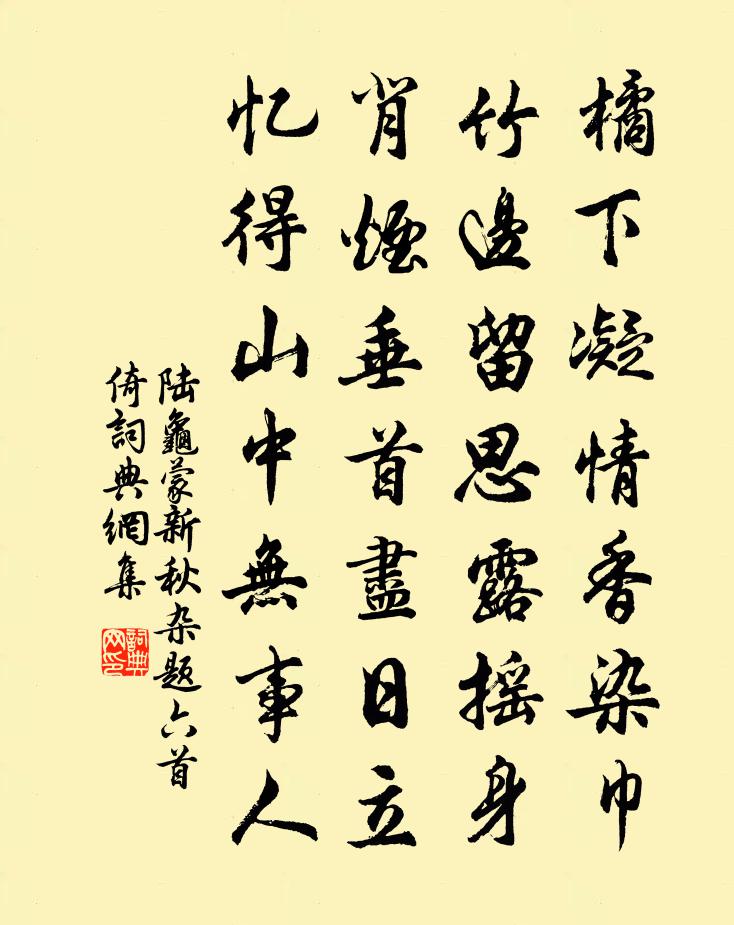 橘下凝情香染巾
竹邊留思露摇身
背煙垂首盡日立
忆得山中無事人
陆龜蒙新秋杂题六首
倚詞典網集
詞典网印